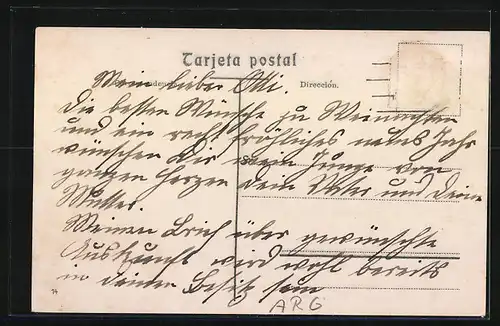 Tarjeta postal
Dirección.
Mein lieber Otti.
Die besten Wünsche zu Weinachten
und ein recht fröhliches neues Jahr
wünschen Dir mein Junge von
ganzen Herzen Dein Vater und Deine
Mutter.
Meinen Brief über gewünschte
Auskunft wird wohl bereits
in deinem Besitz sein
14
ARG